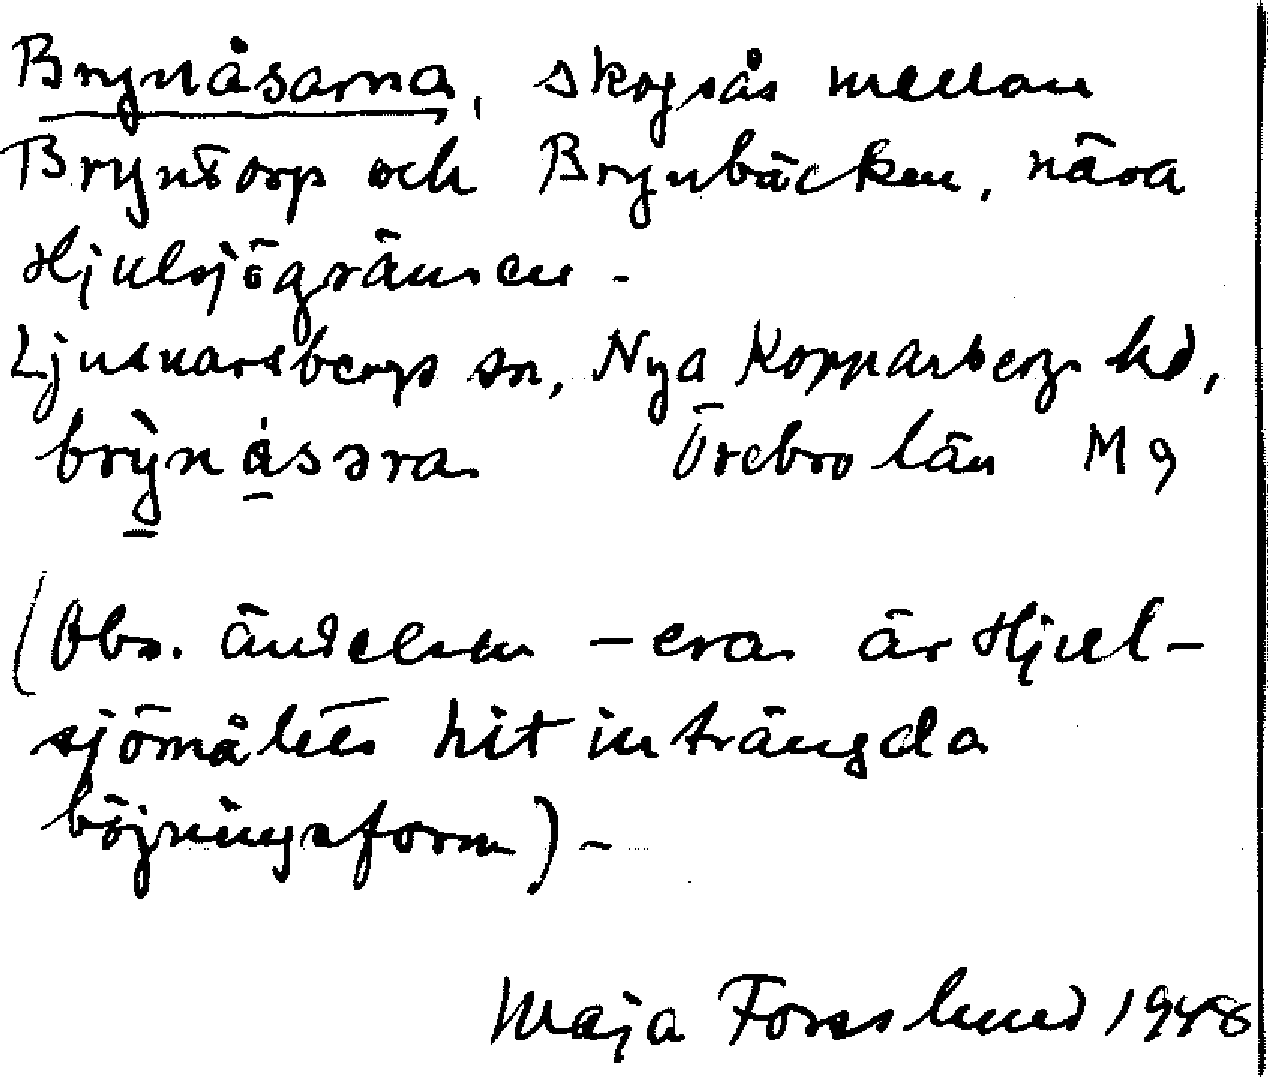 Brynåsarna, skogsås mellan
Bryntorp och Brynbäcken, nära
Hjulsjögränsen -
Ljusnarsbergs sn, Nya Kopparbergs hd,
brỳnásəra Örebro län M 9
(Obs. ändelsen -era är Hjul-
sjömålets hit inträngda
böjningsform) -
Maja Forsslund 1948